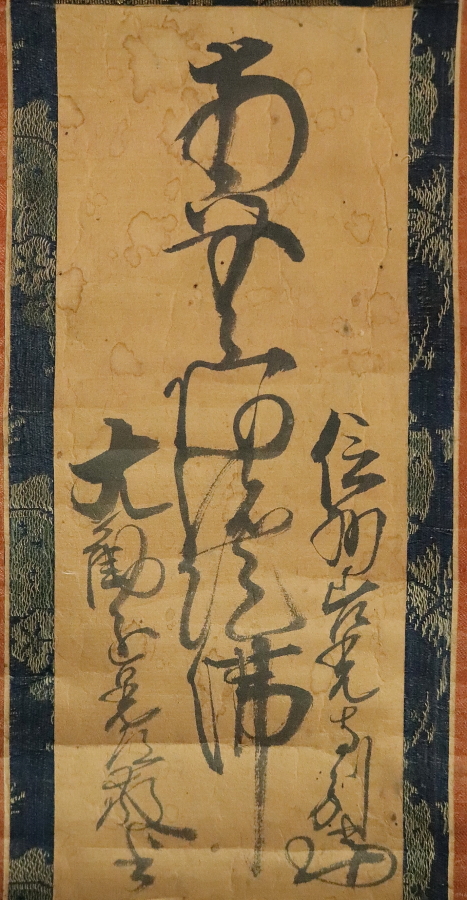 信州善光寺別當
南無阿弥陀佛
大勧進